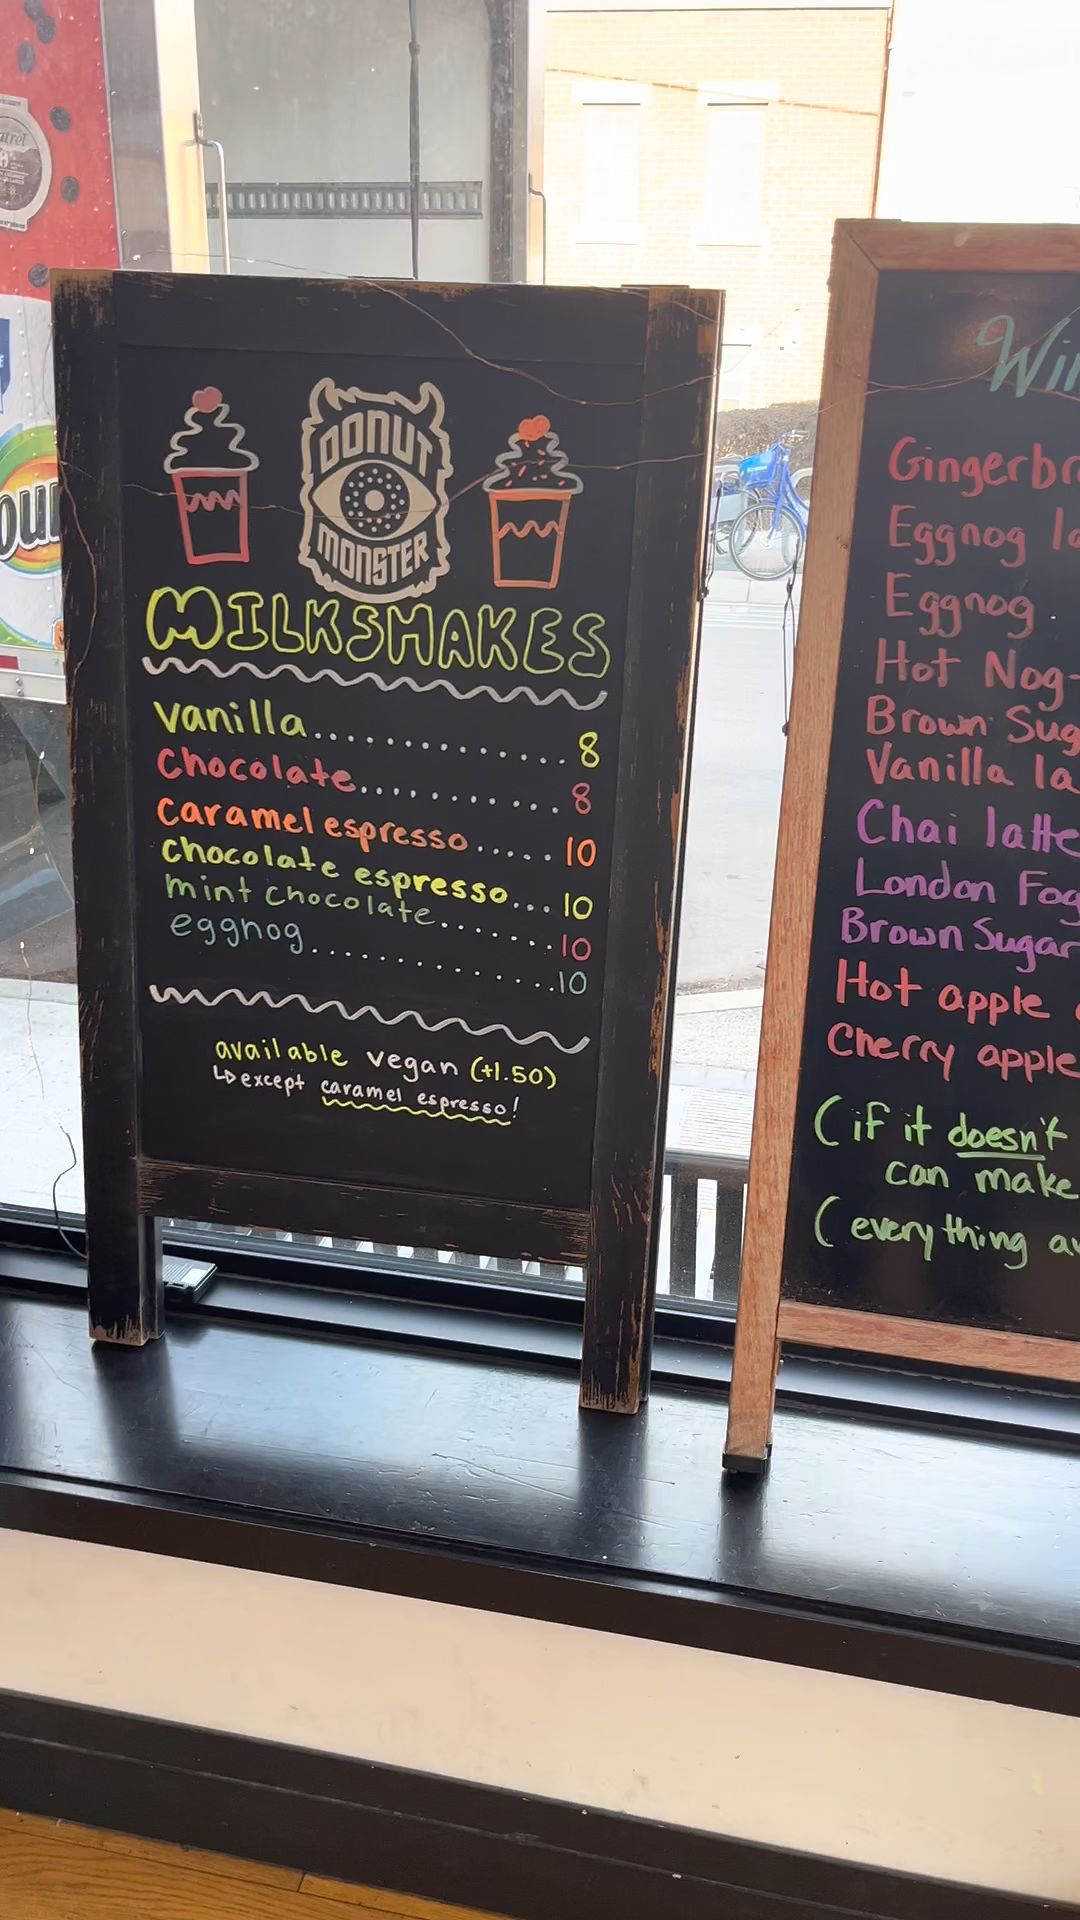 DONUT
MONSTER
MILKSHAKES
vanilla............. 8
Chocolate........... 8
Caramel espresso..... 10
chocolate espresso... 10
mint chocolate....... 10
eggnog.............. 10
available vegan (+1.50)
↳ except caramel espresso!
Eggnog
Hot Nog-
Brown
Vanilla
Chai latte
London
Brown Sugar
Hot apple
Cherry apple
(if it doesn't
can make
(everything